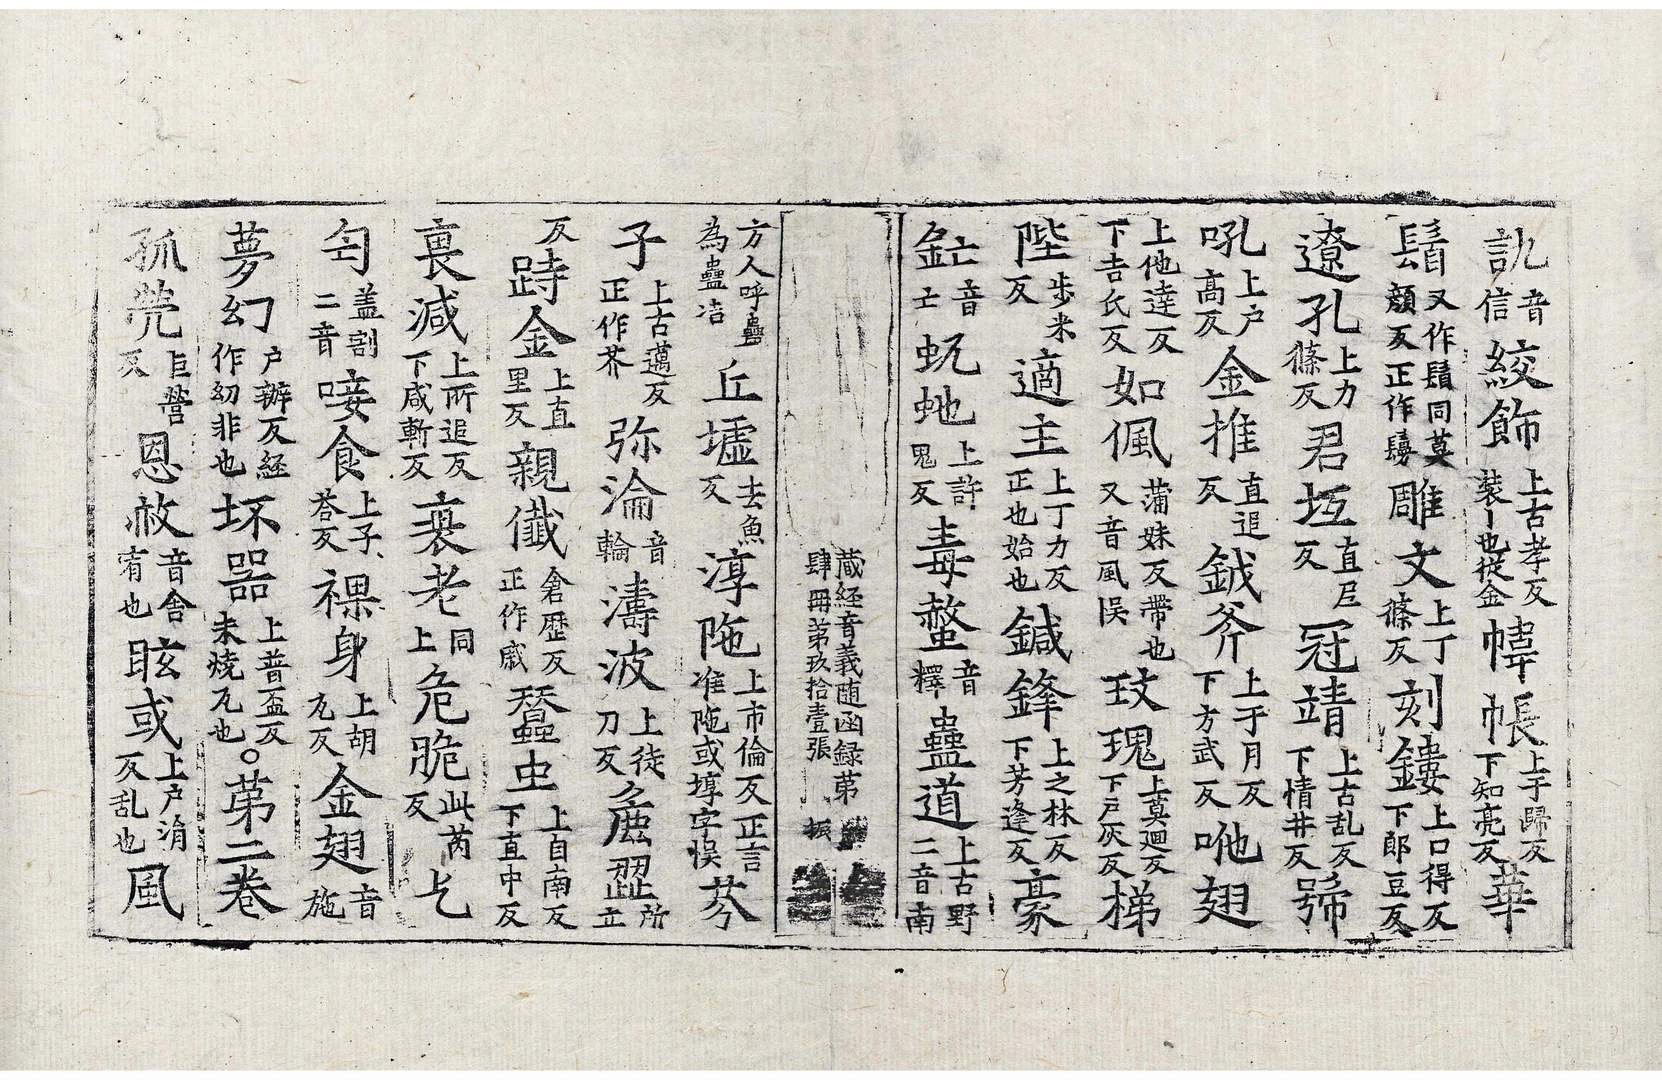 訙音信絞飾上古孝反裝丨也從金幃帳上于歸反下知亮反華
鬚又作鬚同莫顔反正作鬘雕文上丁篠反刻鏤上口得反下郎豆反
遼孔上力篠反君坘直尼反冠靖上古乱反下情井反號
吼上户髙反金推直追反鉞斧上于月反下方武反吔翅
上他達反下吉氏反如佩蒲妹反帶也又音風悮玟瑰上莫迴反下户灰反梯
陛步米反適主上丁力反正也始也鍼鋒上之林反下芳逢反豪
䤈亡音士虺虵上許鬼反毒螫音釋蠱道上古野二音南
藏経音義随函録第肆冊第玖拾壹張 振
方人呼蠱為蠱冶丘墟去魚反淳陁上市倫反正言准陁或埻字悮芥
子上古邁反正作芥弥淪音輪濤波上徒刀反麁澀所立
反跱金上直里反親儎倉歷反正作戚蠶虫上自南反下直中反
衰減上所追反下咸斬反衰老同上危脆此芮反乞
匄盖割二音唼食上子荅反裸身上胡瓦反金翅音施
夢幻户辦反経作㓜非也坏器上普盃反未燒瓦也。第二卷
孤煢巨營反恩赦音舍宥也眩或上户涓反乱也風